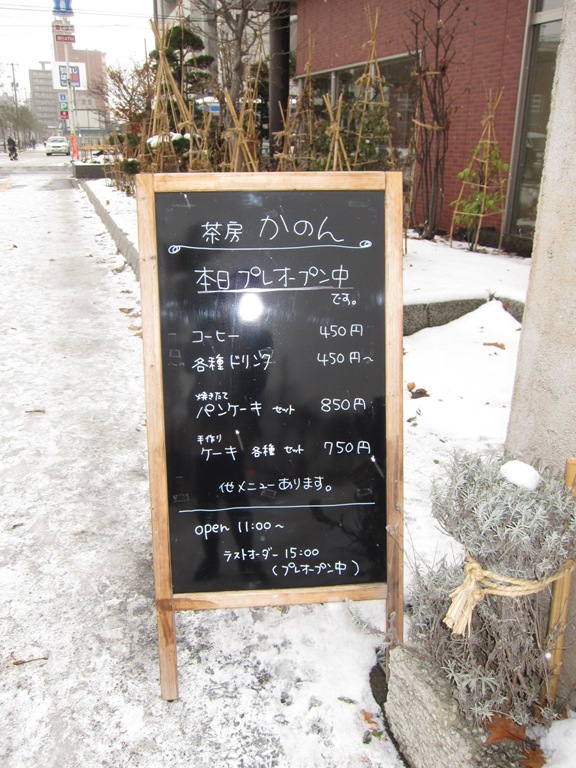 茶房 かのん
本日プレオープン中
です。
コーヒー 450円
各種ドリンク 450円～
焼きたて
パンケーキ セット 850円
手作り
ケーキ 各種 セット 750円
他メニューあります。
open 11:00～
ラストオーダー 15:00
(プレオープン中)